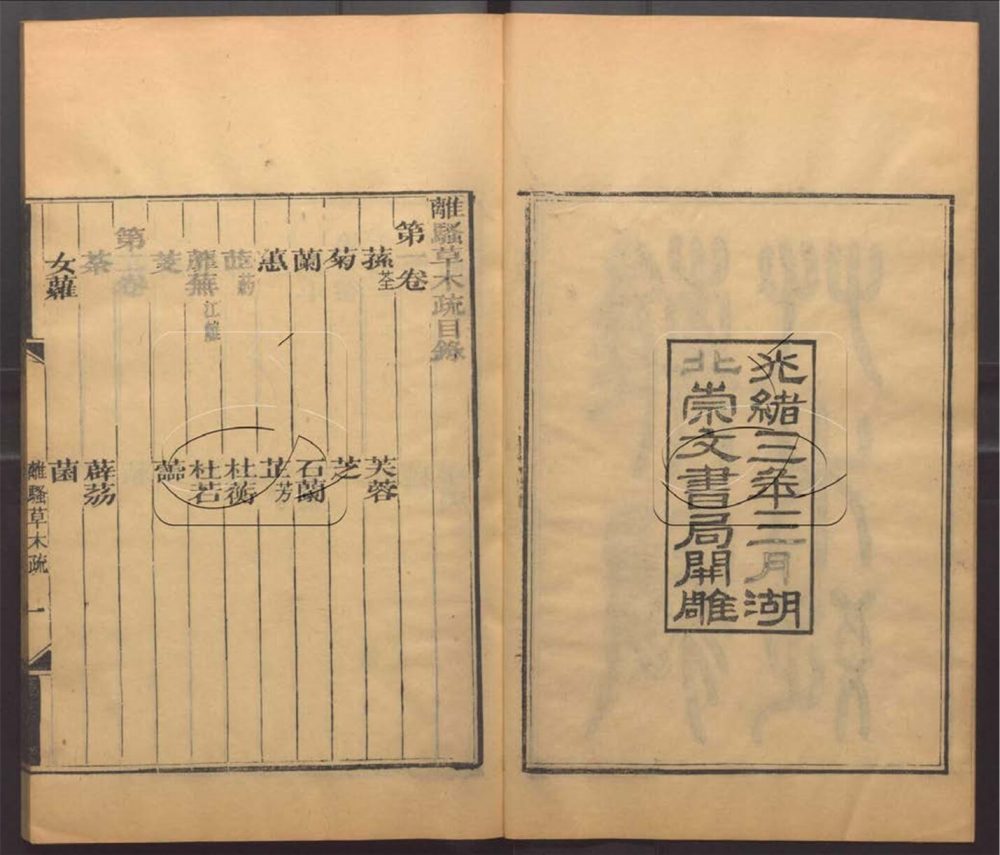 光緒三年三月湖
北崇文書局開雕
離騷草木疏目錄
第一卷
蓀荃 芙蓉
菊 芝
蘭 石蘭
蕙 芷芳
茝葯 杜蘅
蘼蕪江蘺 杜若
芰
第二卷
荼 薜荔
女蘿 菌
離騷草木疏 一